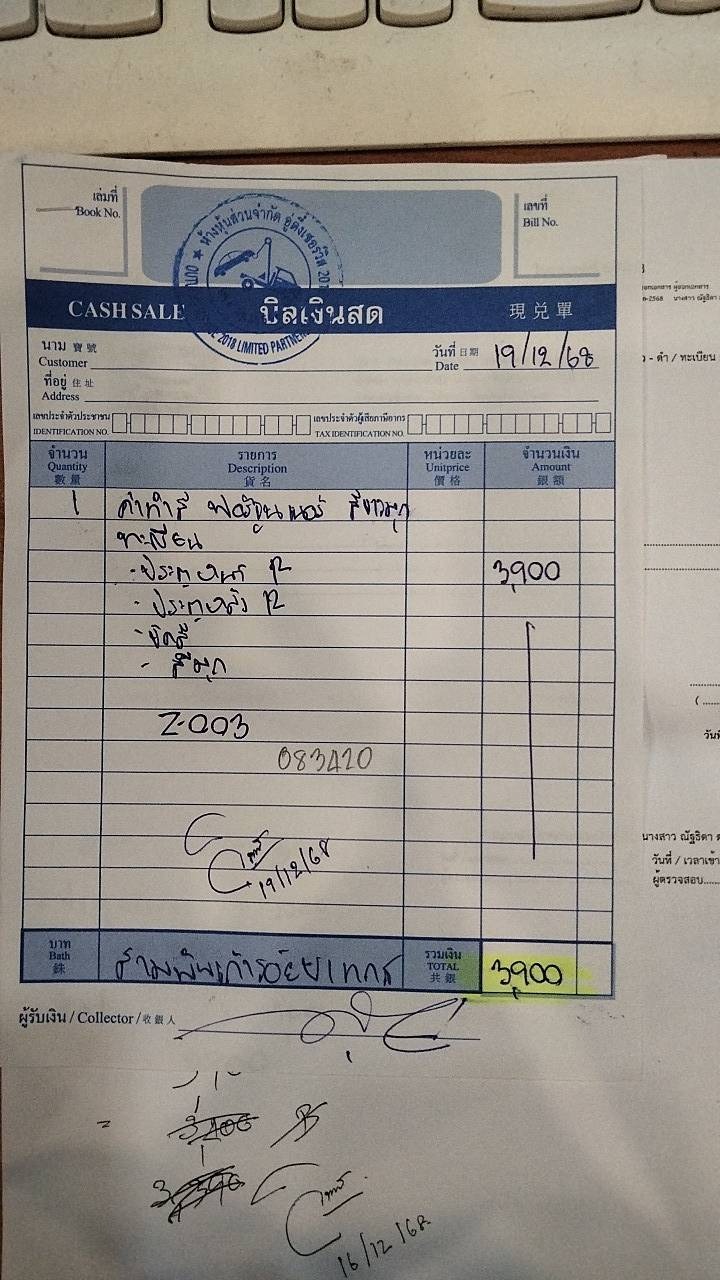 เล่มที่
Book No.
เลขที่
Bill No.
ห้างหุ้นส่วนจำกัด อู่ตี๋เซอร์วิส 20
2018 LIMITED PARTNER
CASH SALE บิลเงินสด 現兌單
นาม 寶號
Customer
วันที่ 日期
Date 19/12/68
ที่อยู่ 住址
Address
เลขประจำตัวประชาชน
IDENTIFICATION NO.
เลขประจำตัวผู้เสียภาษีอากร
TAX IDENTIFICATION NO.
จำนวน
Quantity
數量
รายการ
Description
貨名
หน่วยละ
Unitprice
價格
จำนวนเงิน
Amount
銀額
1 ค่าทำสี ฟอร์จูนเนอร์ สีขาวมุก
ทะเบียน
- ประตูหน้า R 3,900
- ประตูหลัง R
- ขัดสี
- สีมุก
Z-003
083420
19/12/68
บาท
Bath
銖
สามพันเก้าร้อยบาทถ้วน
รวมเงิน
TOTAL
共銀
3,900
ผู้รับเงิน / Collector / 收銀人
=
16/12/68
- ดำ / ทะเบียน
นางสาว ณัฐธิดา
วันที่ / เวลาเข้า
ผู้ตรวจสอบ......